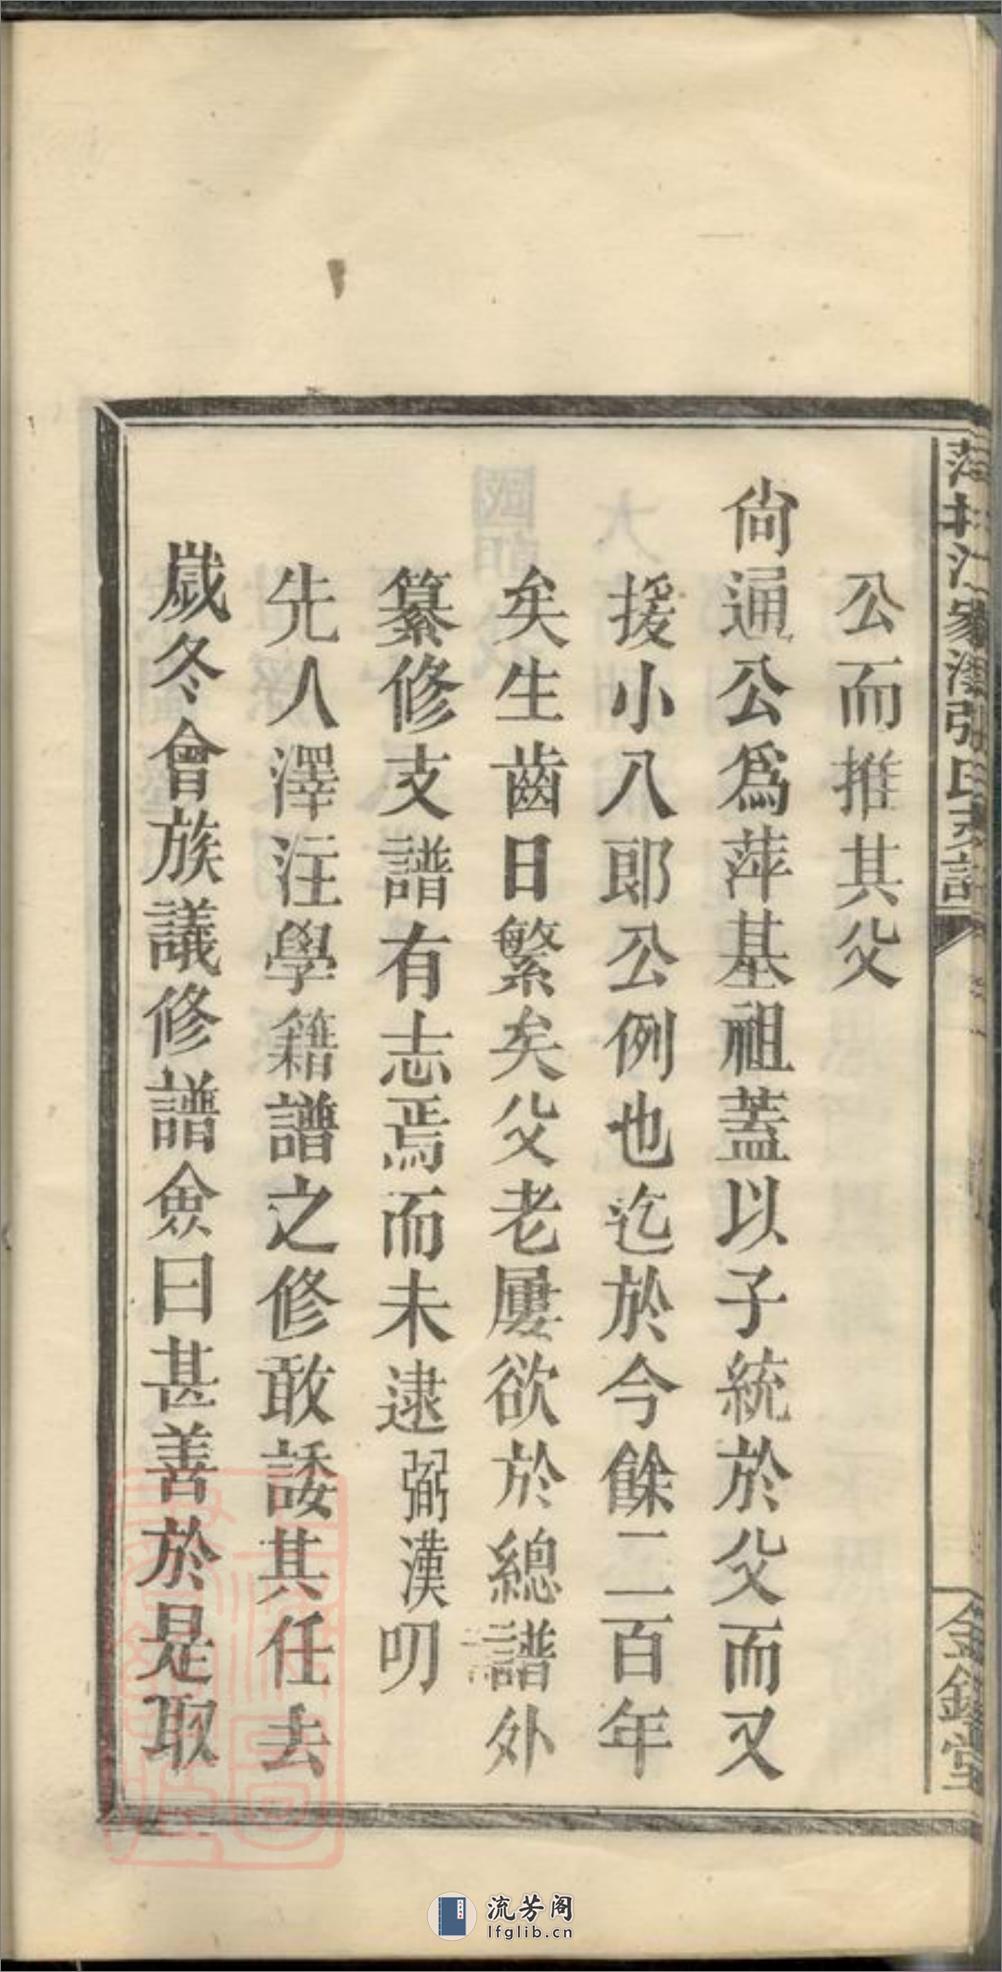 公而推其父
尙通公爲萍基祖蓋以子統於父而又
援小八郎公例也迄於今餘二百年
矣生齒日繁矣父老屢欲於總譜外
纂修支譜有志焉而未逮弼漢叨
先人澤注學籍譜之修敢諉其任去
歲冬會族議修譜僉曰甚善於是取
張氏支譜
金鑑堂
流芳阁
lfglib.cn